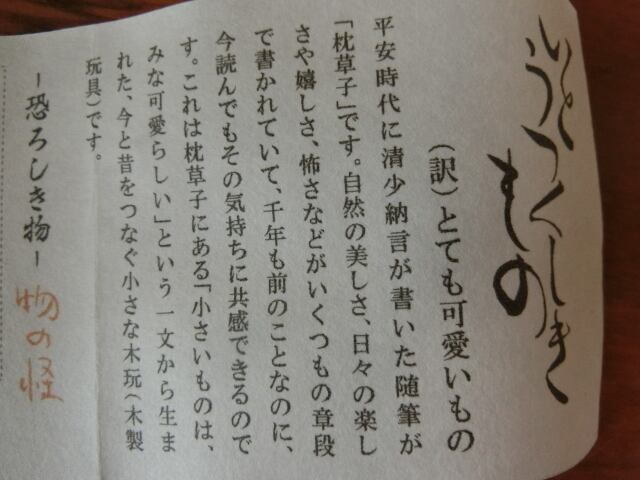 いと
うつくしき
もの
(訳)とても可愛いもの
平安時代に清少納言が書いた随筆が
「枕草子」です。自然の美しさ、日々の楽し
さや嬉しさ、怖さなどがいくつもの章段
で書かれていて、千年も前のことなのに、
今読んでもその気持ちに共感できるので
す。これは枕草子にある「小さいものは、
みな可愛らしい」という一文から生ま
れた、今と昔をつなぐ小さな木玩(木製
玩具)です。
-恐ろしき物-
物の怪